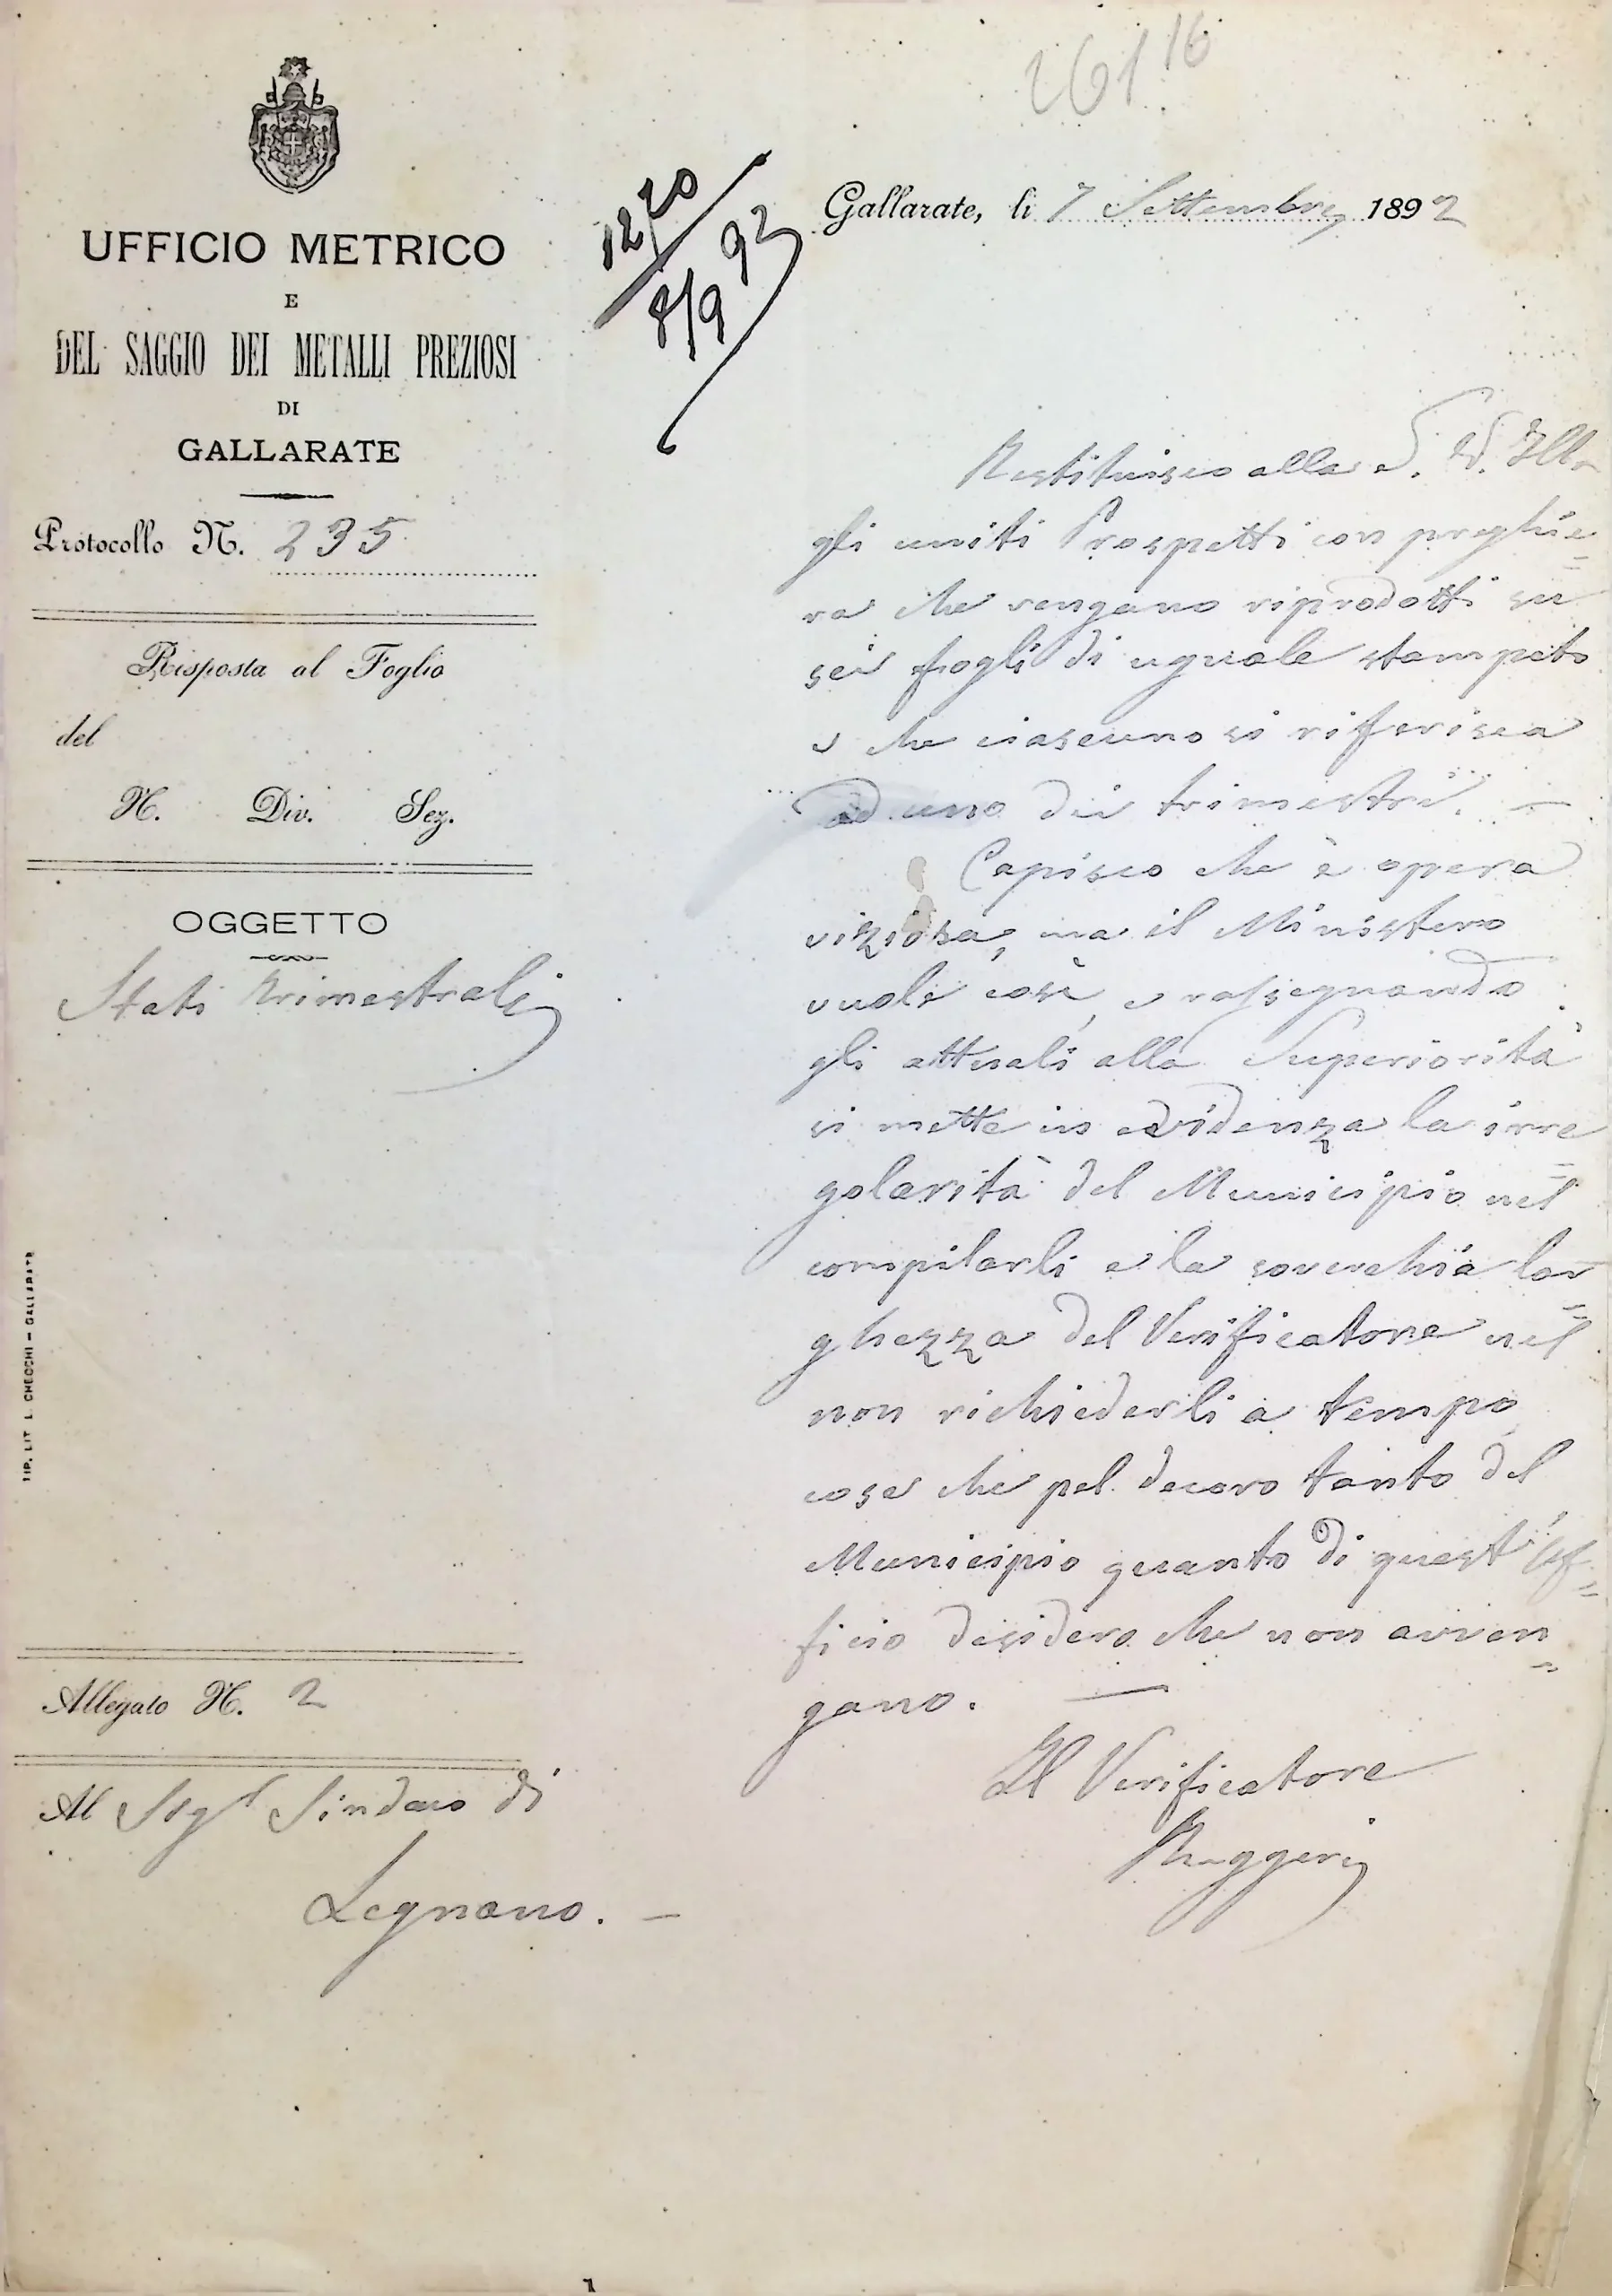 261 16
UFFICIO METRICO
E
DEL SAGGIO DEI METALLI PREZIOSI
DI
GALLARATE
Protocollo N. 235
Risposta al Foglio
del
N. Div. Sez.
OGGETTO
Stati trimestrali
TIP. LIT L. CHECCHI — GALLARATE
Allegato N. 2
Al Sigr Sindaco di
Legnano. —
1220
8/9 92
Gallarate, li 7 Settembre 1892
Restituisco alla S. V. Illa
gli uniti Prospetti con preghie=
ra che vengano riprodotti su
sei fogli di uguale stampato
e che ciascuno si riferisca
ad uno dei trimestri. —
Capisco che è opera
viziosa, ma il Ministero
vuole così, e rassegnando
gli attuali alla Superiorità
si mette in evidenza la irre=
golarità del Municipio nel
compilarli e la soverchia lar=
ghezza del Verificatore nel
non richiederli a tempo,
cose che pel decoro tanto del
Municipio quanto di quest'Uf=
ficio desidero che non avven=
gano. —
Il Verificatore
Ruggeri